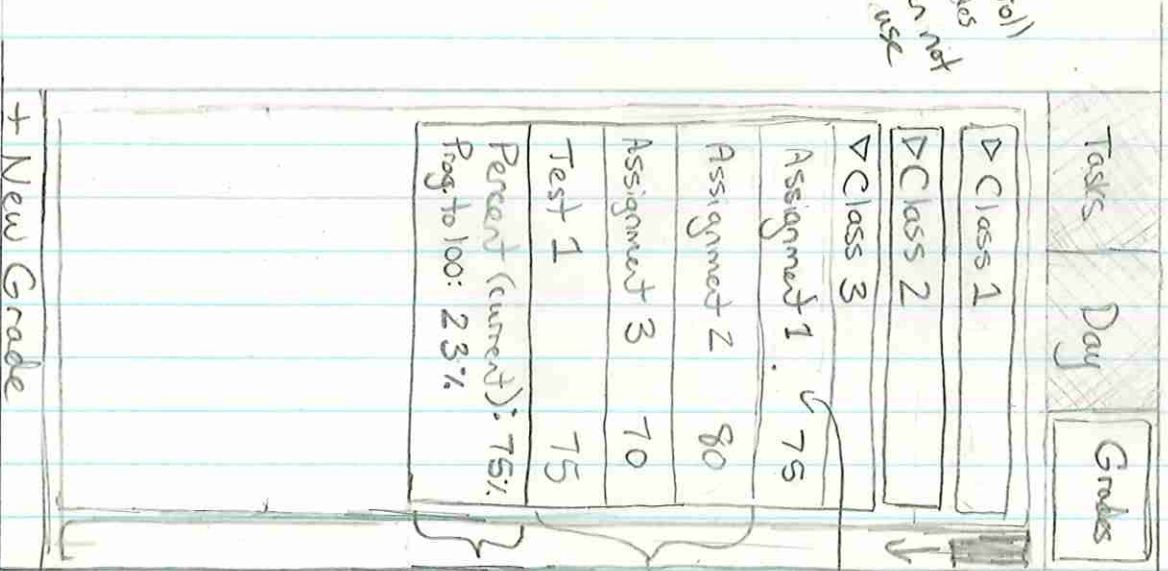 Tasks Day Grades
▷ Class 1
▷ Class 2
▽ Class 3
Assignment 1 75
Assignment 2 80
Assignment 3 70
Test 1 75
Percent (current): 75%
Prog. to 100: 23%
+ New Grade
not
use